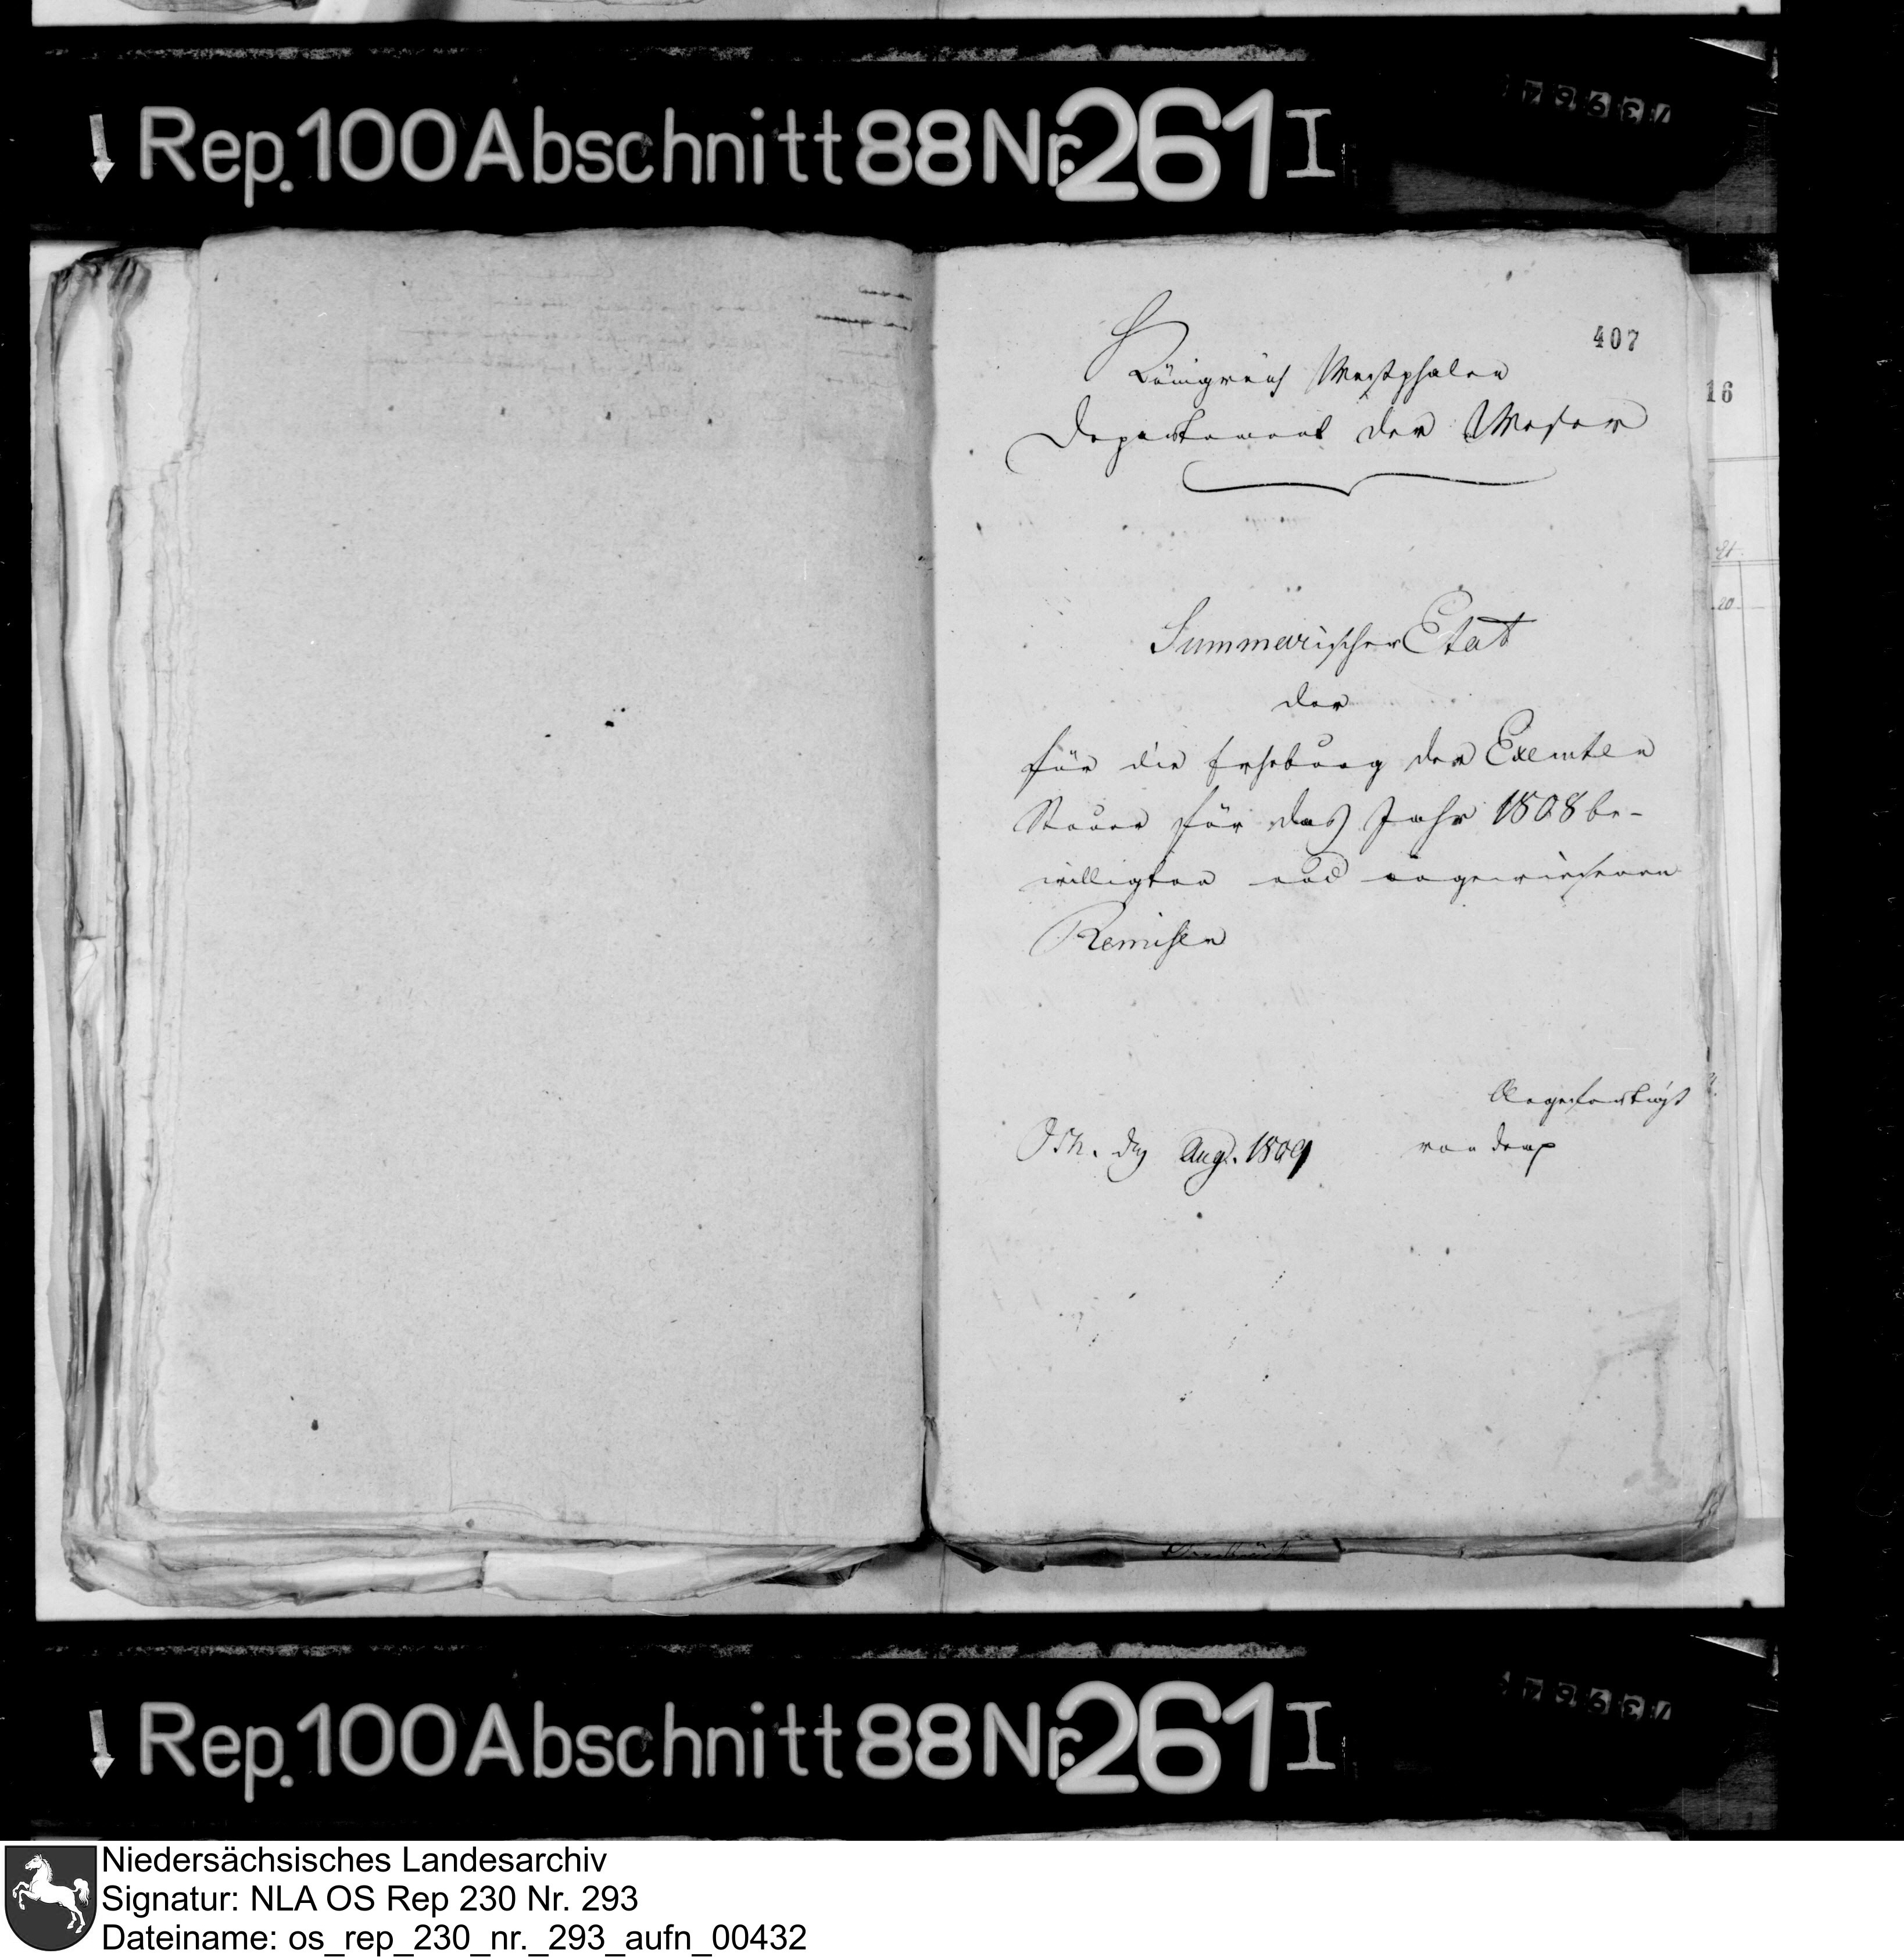 Rep. 100 Abschnitt 88 Nr. 261 I
407
Königreich Westphalen
Departement der Weser
16
Summarischer Etat
der
für die Erhebung der Exemten
Steuer für das Jahr 1808 be-
willigten und angewiesenen
Remisen
Angefertigt
Osn. den Aug. 1809
von dem
Rep. 100 Abschnitt 88 Nr. 261 I
Niedersächsisches Landesarchiv
Signatur: NLA OS Rep 230 Nr. 293
Dateiname: os_rep_230_nr._293_aufn_00432